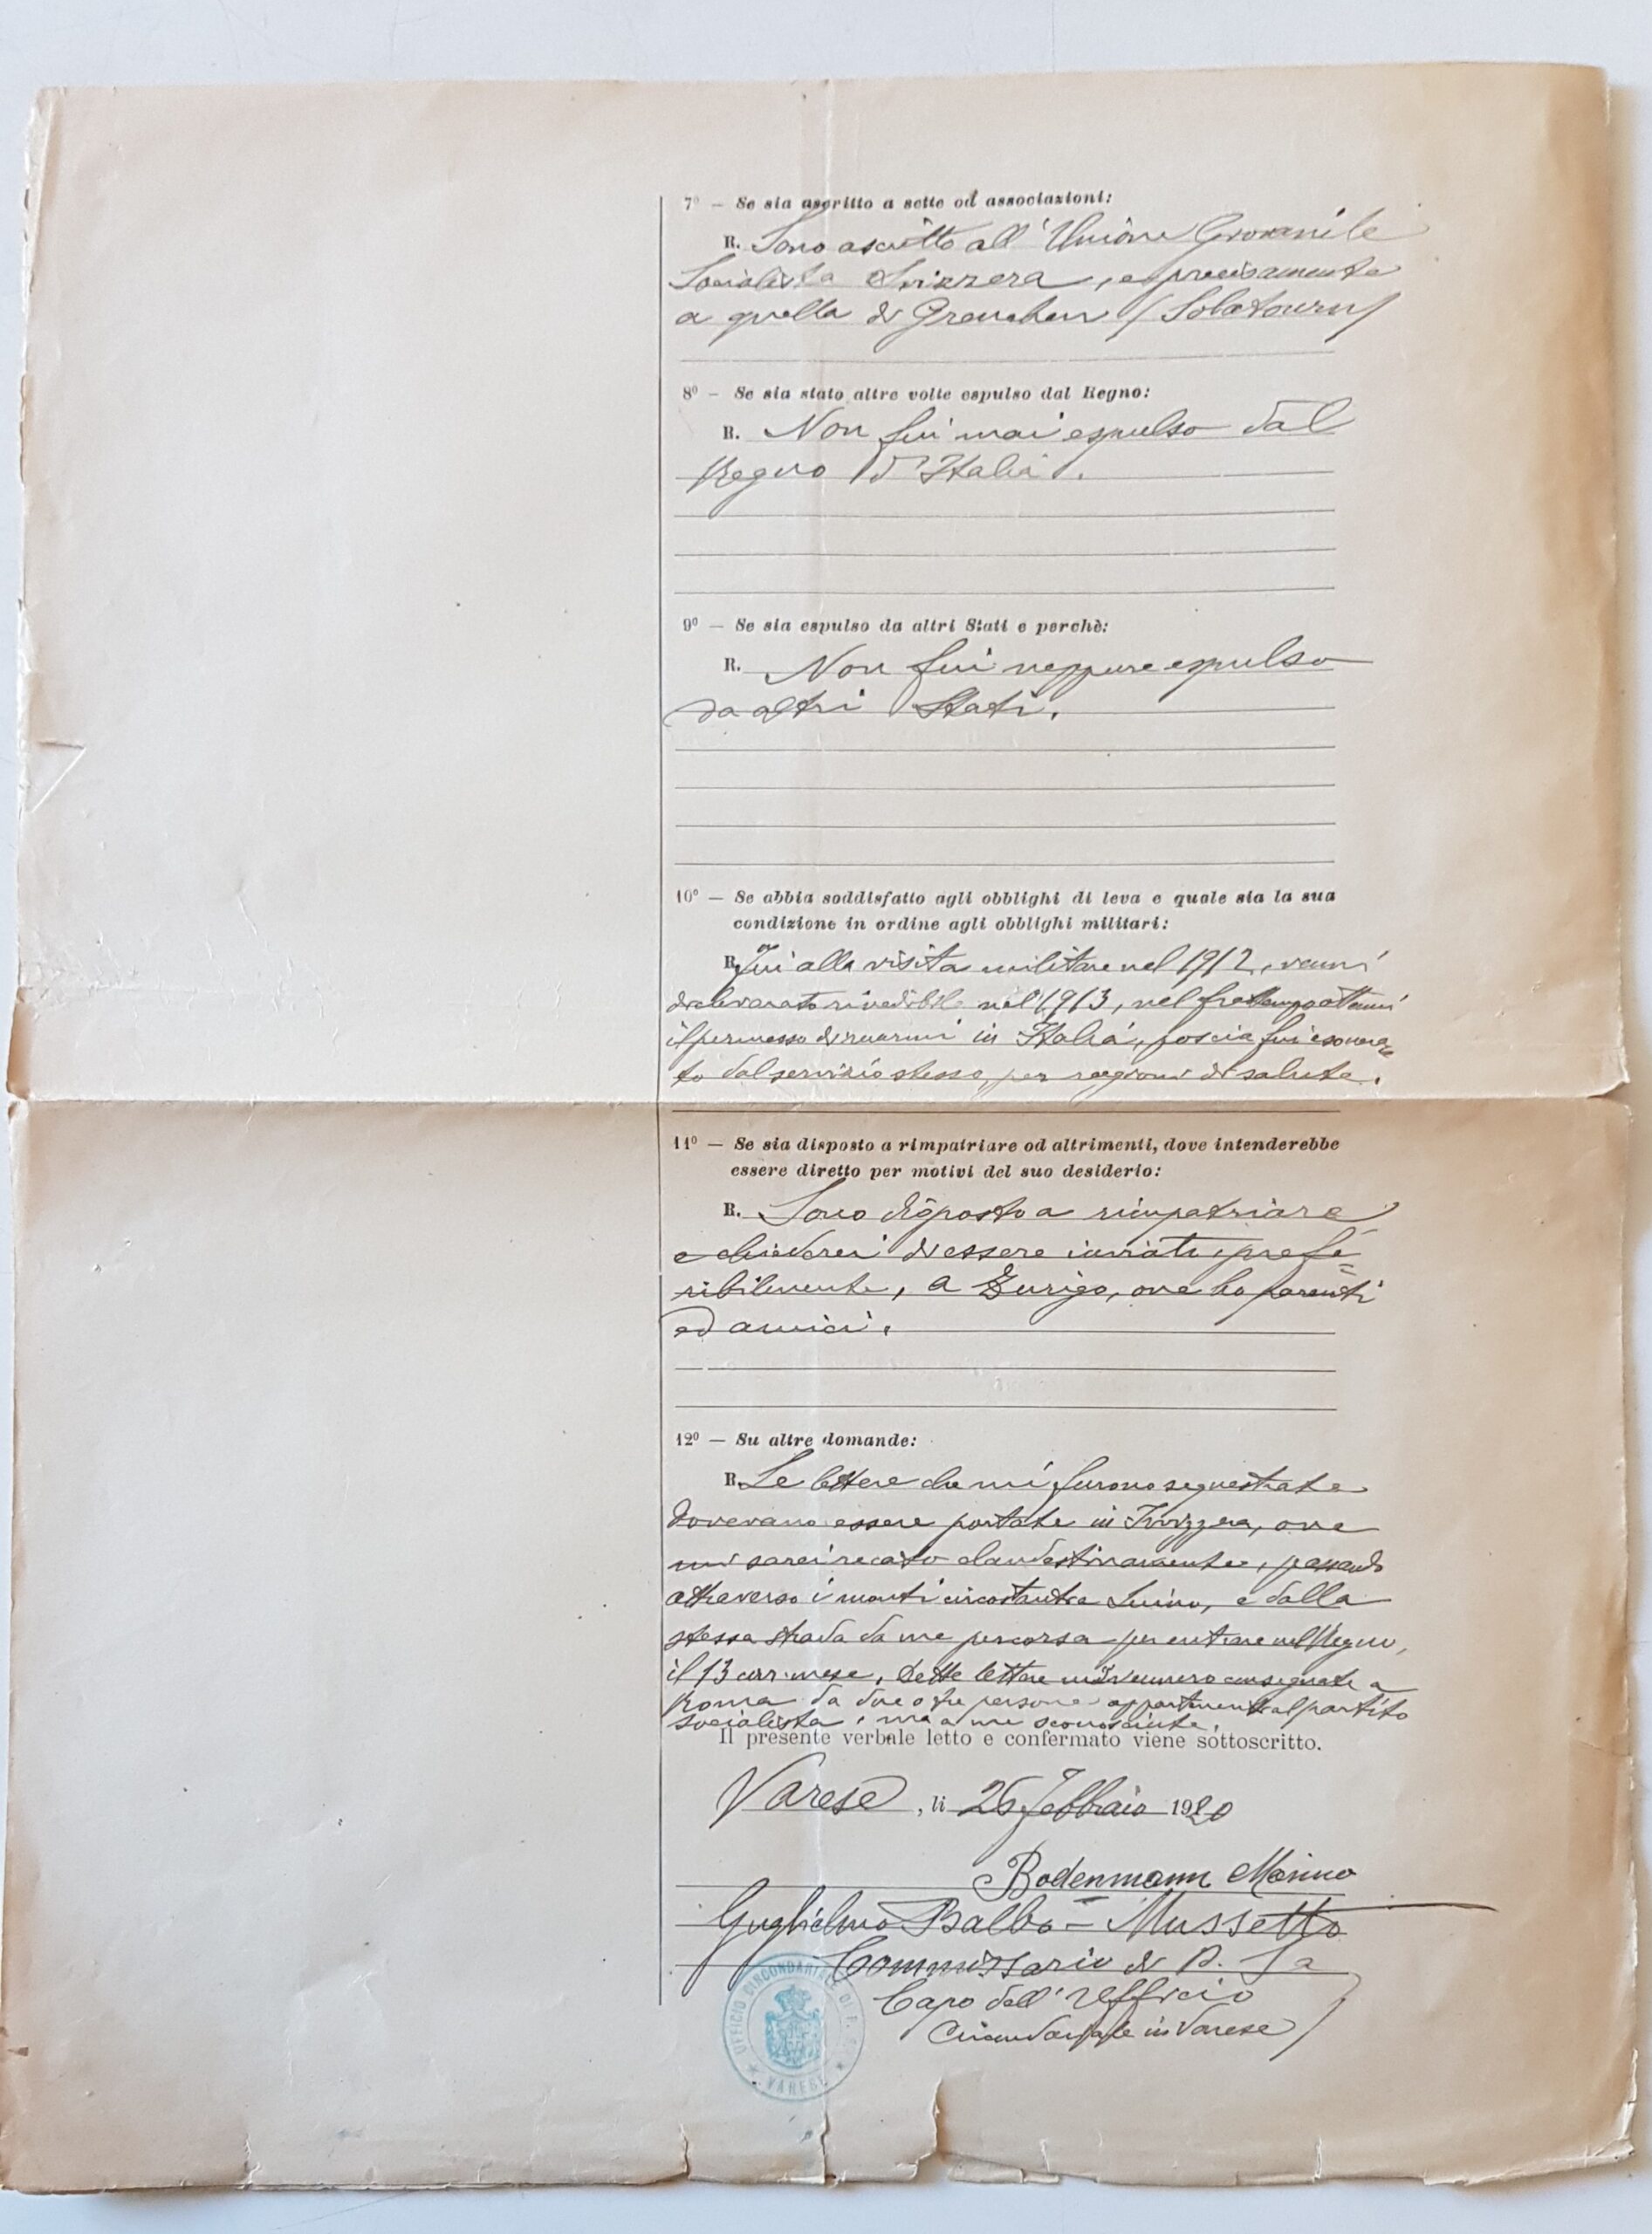 7º — Se sia ascritto a sette od associazioni:
R. Sono ascritto all'Unione Giovanile
Socialista Svizzera, e precisamente
a quella di Grenchen (Solothurn)
8º — Se sia stato altre volte espulso dal Regno:
R. Non fui mai espulso dal
Regno d'Italia.
9º — Se sia espulso da altri Stati e perchè:
R. Non fui neppure espulso
da altri Stati.
10º — Se abbia soddisfatto agli obblighi di leva e quale sia la sua
condizione in ordine agli obblighi militari:
R. Fui alla visita militare nel 1912, venni
dichiarato rivedibile nel 1913, nel frattempo ottenni
il permesso di venirmi in Italia, poscia fui esonera=
to dal servizio stesso, per ragioni di salute.
11º — Se sia disposto a rimpatriare od altrimenti, dove intenderebbe
essere diretto per motivi del suo desiderio:
R. Sono disposto a rimpatriare
e chiederei di essere inviato, prefe=
ribilmente, a Zurigo, ove ho parenti
ed amici.
12º — Su altre domande:
R. Le lettere che mi furono sequestrate
dovevano essere portate in Svizzera, ove
mi sarei recato clandestinamente, passando
attraverso i monti circostanti a Luino, e dalla
stessa strada da me percorsa per entrare nel Regno,
il 13 corr. mese. Dette lettere mi vennero consegnate a
Roma da due o tre persone appartenenti al partito
socialista, ma a me sconosciute.
Il presente verbale letto e confermato viene sottoscritto.
Varese, li 26 Febbraio 1920
Bodenmann Marino
Guglielmo Balbo-Mussetto
Commissario di P. Sa
Capo dell'Ufficio
Circondariale in Varese
UFFICIO CIRCONDARIALE DI P. S.
VARESE